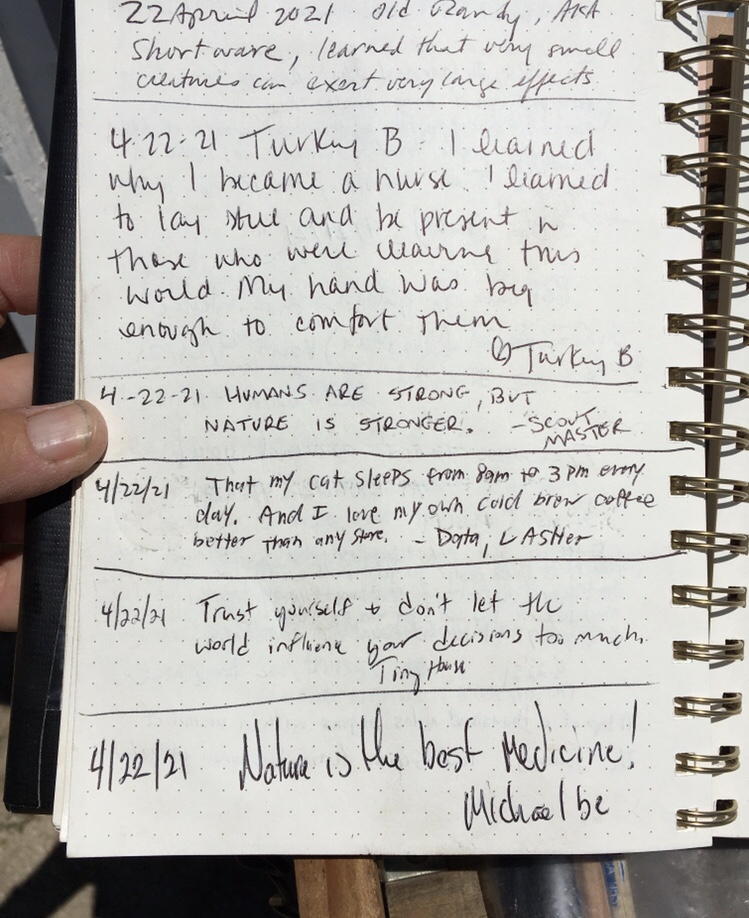 22 April 2021 Old Randy, AKA
Shortware, learned that very small
creatures can exert very large effects
4.22.21 Turkey B. I learned
why I became a nurse. I learned
to lay still and be present in
those who were leaving this
world. My hand was big
enough to comfort them
Turkey B
4-22-21 HUMANS ARE STRONG, BUT
NATURE IS STRONGER. - SCOUT
MASTER
4/22/21 That my cat sleeps from 8am to 3 pm every
day. And I love my own cold brew coffee
better than any store. - Data, LASHer
4/22/21 Trust yourself & don't let the
world influence your decisions too much.
Tiny House
4/22/21 Nature is the best Medicine!
Michael be